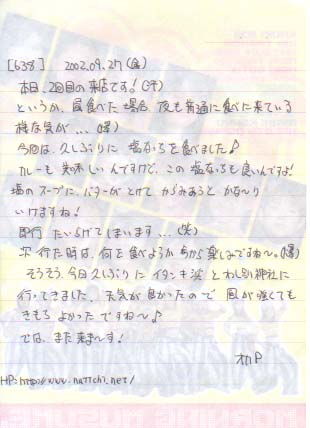 [638] 2002.09.27(金)
本日、2回目の来店です!(汗)
というか、昼食べた場合、夜も普通に食べに来ている
様な気が...(爆)
今回は、久しぶりに塩なっちを食べました♪
カレーも美味しいんですけど、この塩なっちも良いんですよ!
塩のスープに、バターがとけて、からみあうと かな〜り
いけますね!
即行 たいらげてしまいます...(笑)
次行た時は、何を食べようか 今から楽しみですね〜。(爆)
そうそう、今日久しぶりに イタンキ浜と わし別神社に
行ってきました。天気が良かったので 風が強くても
きもちよかったですね〜♪
では、また来ま〜す!
HP:http://www.nattchi.net/
MORNING MUSUME